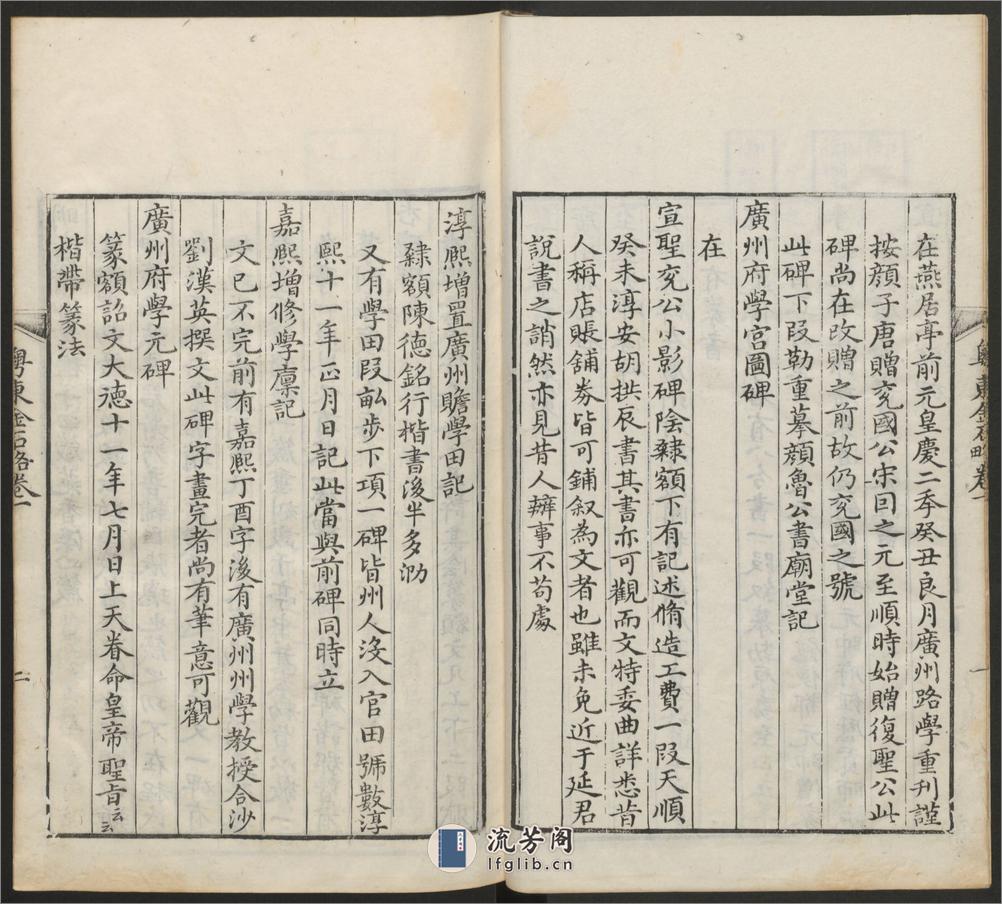 在燕居亭前元皇慶二季癸丑良月廣州路學重刊謹
按顏子唐贈兖國公宋因之元至順時始贈復聖公此
碑尚在改贈之前故仍兖國之號
此碑下段勒重摹顏魯公書廟堂記
廣州府學宮圖碑
在
宣聖兖公小影碑陰隸額下有記述脩造工費一段天順
癸未淳安胡拱辰書其書亦可觀而文特委曲詳悉昔
人稱店賬舖券皆可鋪叙為文者也雖未免近于延君
說書之誚然亦見昔人辦事不苟處
粵東金石略卷一
一
淳熙增置廣州贍學田記
隸額陳德銘行楷書後半多泐
又有學田段畝步下項一碑皆州人沒入官田號數淳
熙十一年正月日記此當與前碑同時立
嘉熙增修學廩記
文已不完前有嘉熙丁酉字後有廣州州學教授合沙
劉漢英撰文此碑字畫完者尚有筆意可觀
廣州府學元碑
篆額詔文大德十一年七月日上天眷命皇帝聖旨云云
楷帶篆法
粵東金石略卷一
二
流芳阁
lfglib.cn